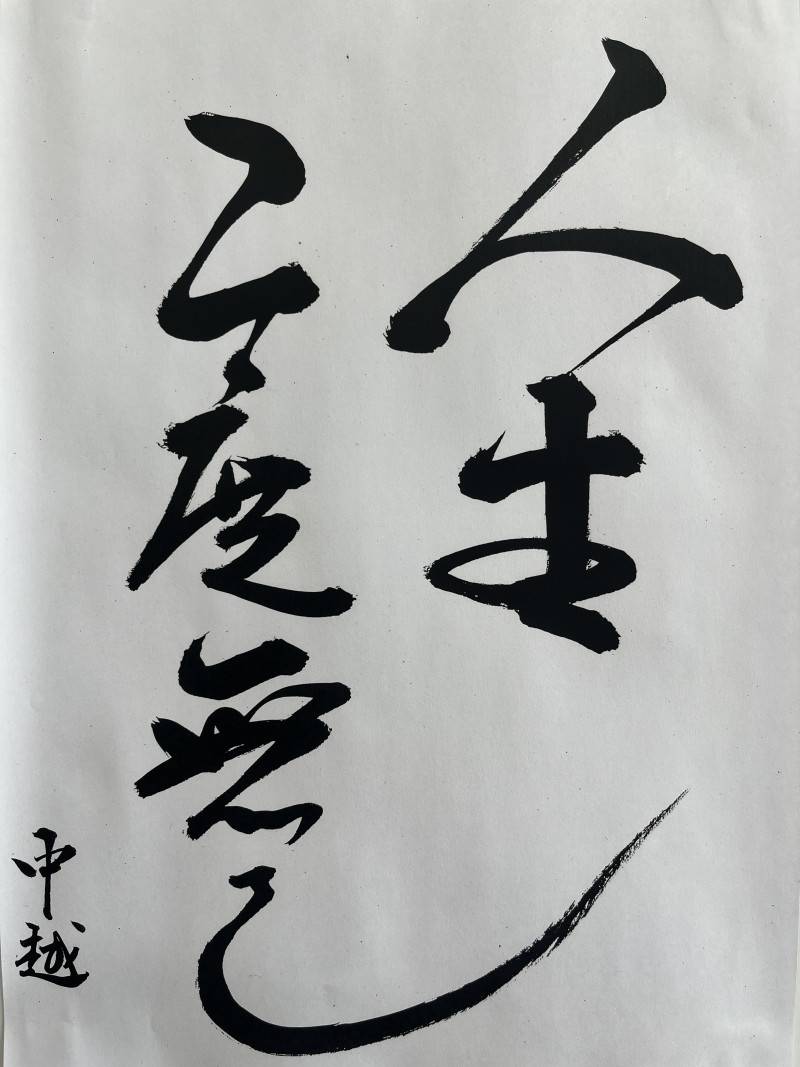 人生
二度無し
中越